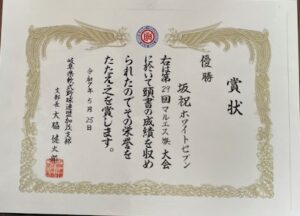 賞状
優勝
坂祝ホワイトセブン
右は第29回マルエス旗大会
に於いて頭書の成績を収め
られたのでその栄誉を
たたえ之を賞します。
令和7年5月25日
岐阜県軟式野球連盟加茂支部
支部長 大脇健太郎